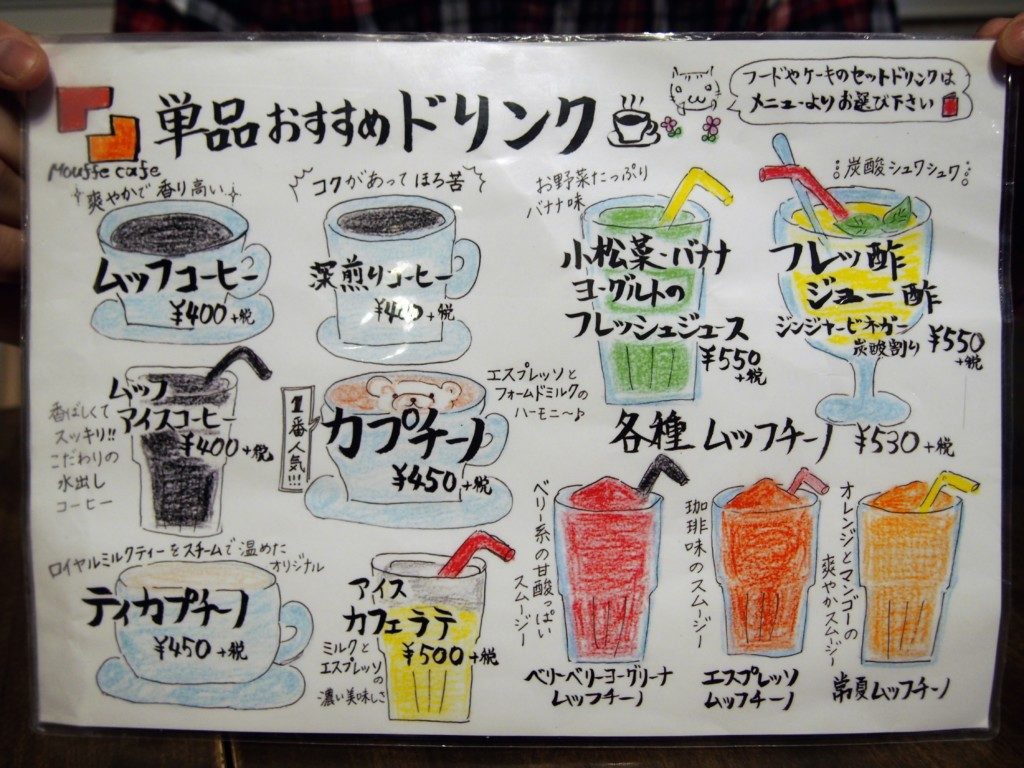 単品おすすめドリンク
フードやケーキのセットドリンクは
メニューよりお選び下さい
Mouffe cafe
爽やかで香り高い
ムッフコーヒー
¥400+税
コクがあってほろ苦
深煎りコーヒー
¥400+税
お野菜たっぷり
バナナ味
小松菜・バナナ
ヨーグルトの
フレッシュジュース
¥550
+税
炭酸シュワシュワ
フレッ酢
ジュー酢
ジンジャービネガー
炭酸割り
¥550
+税
ムッフ
アイスコーヒー
¥400+税
香ばしくて
スッキリ!!
こだわりの
水出し
コーヒー
1番人気!!!
カプチーノ
¥450+税
エスプレッソと
フォームドミルクの
ハーモニ〜♪
各種ムッフチーノ ¥530+税
ベリー系の甘酸っぱい
スムージー
ベリーベリーヨーグリーナ
ムッフチーノ
珈琲味のスムージー
エスプレッソ
ムッフチーノ
オレンジとマンゴーの
爽やかスムージー
常夏ムッフチーノ
ロイヤルミルクティーをスチームで温めた
オリジナル
ティカプチーノ
¥450+税
アイス
カフェラテ
¥500+税
ミルクと
エスプレッソ
の
濃い美味しさ